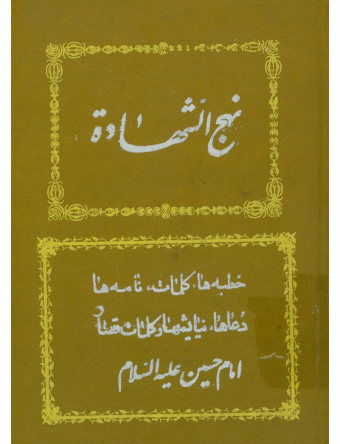 نهج الشهادة
خطبه‌ها، کلمات، نامه‌ها
دعاها، نیایشها و کلمات قصار
امام حسین علیه السلام